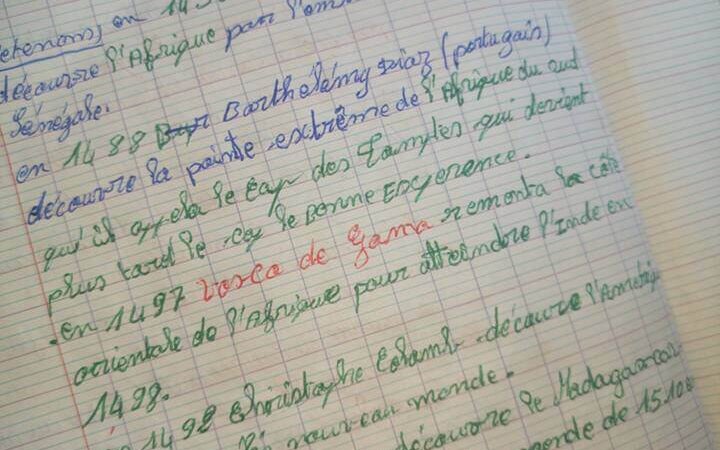 retenons, en 14
découvre l'Afrique par l'em
Sénégale.
en 1488 Barthélémy Diaz (portugain)
découvre la pointe extrême de l'Afrique du sud
qu'il appela le cap des Tamptes qui devient
plus tard le cap de Bonne Esperence.
en 1497 Vasco de Gama remonta la côte
orientale de l'Afrique pour atteindre l'Inde en
1498.
1492 Christophe Colomb découvre l'Amériq
nouveau monde.
découvre le Madagascar
monde de 1510